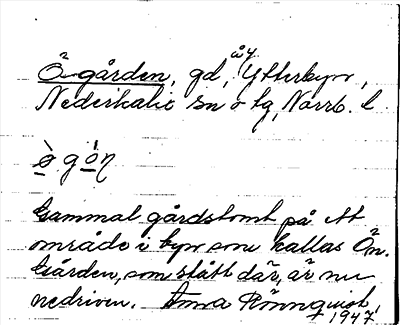 Ö-gården, gd, åv Ytterbyn,
Nederkalix sn o tg, Norrb. l
ò̱ g ó̱ṇ
Gammal gårdstomt på ett
område i byn som kallas Ön.
Gården, som stått där, är nu
nedriven. Anna Rönnquist,
1947